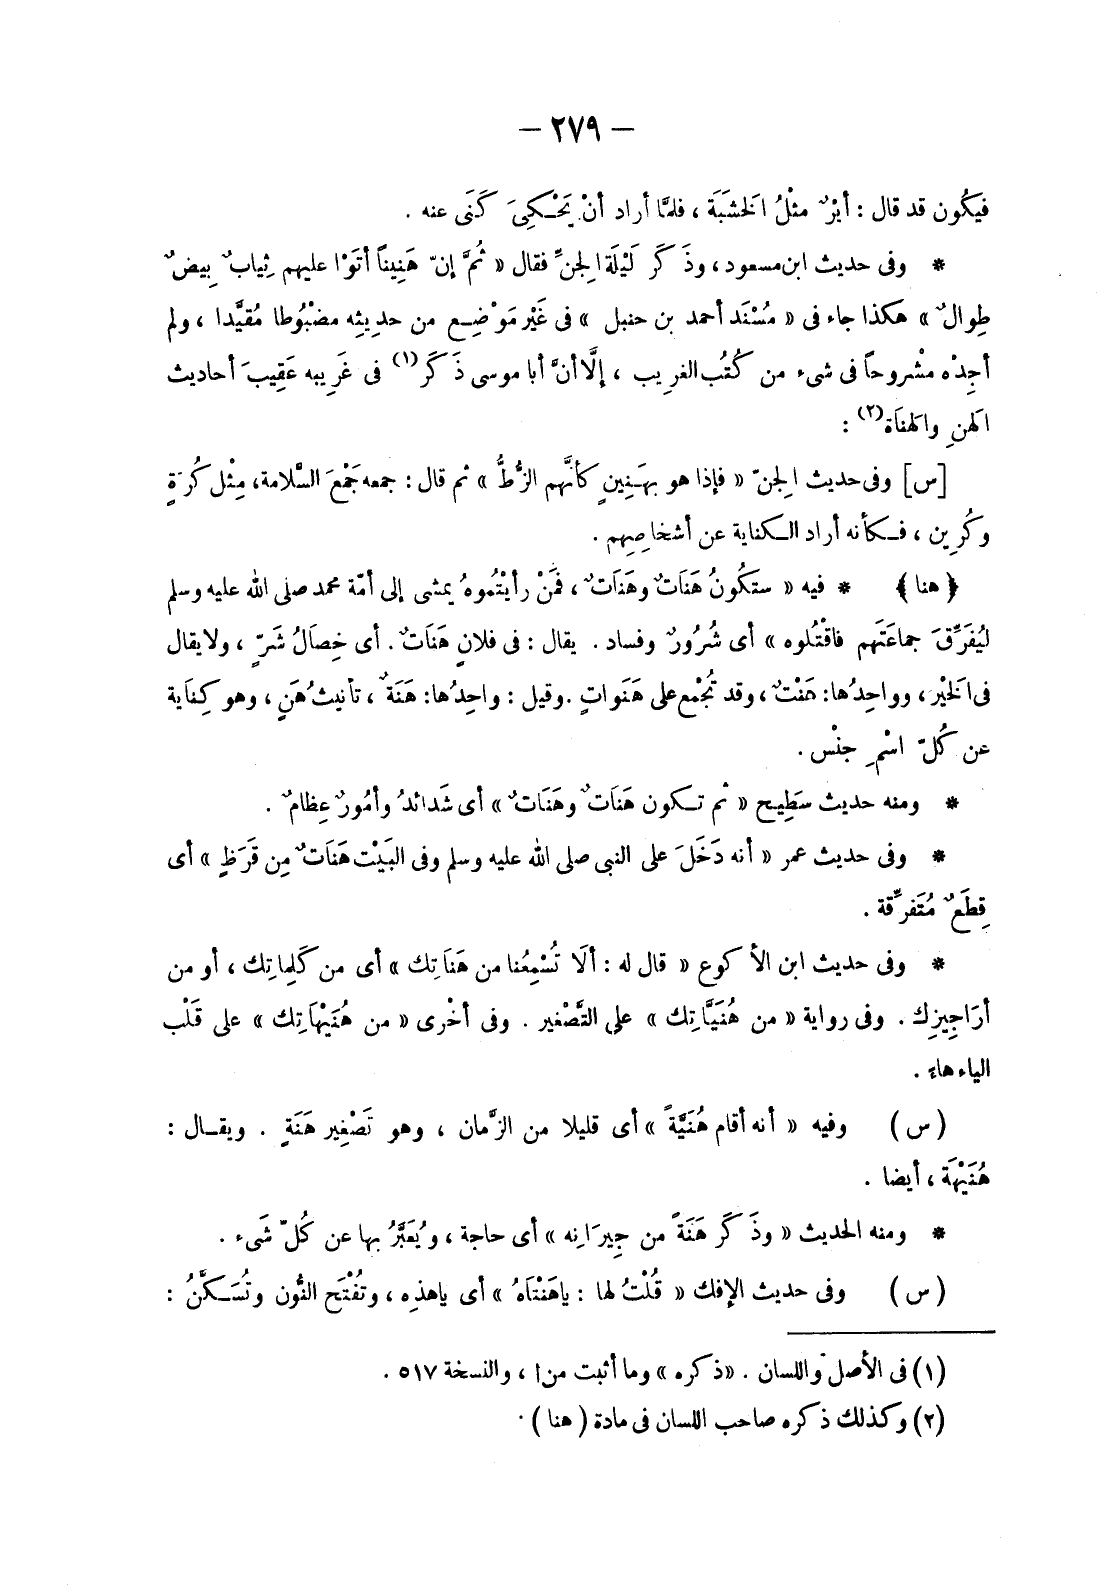 — ٢٧٩ —
فيَكُون قد قال : أيْرٌ مثْلُ الخشَبَة ، فلمَّا أراد أنْ يَحْكِىَ كَنَى عنه .
* وفى حديث ابن مسعود ، وذَكَر لَيْلَة الجِنِّ فقال « ثُمَّ إنّ هَنِيناً أتَوْا عليهم ثِيابٌ بِيضٌ
طِوالٌ » هكذا جاء فى « مُسْنَد أحمد بن حنبل » فى غَيْر مَوْضِع من حديثِه مضبُوطا مُقيَّدا ، ولم
أجِدْه مشْروحاً فى شىء من كُتُب الغريب ، إلَّا أنَّ أبا موسى ذَكَر (١) فى غَرِيبه عَقِيبَ أحاديث
الهنِ والهنَاة (٢) :
[س] وفى حديث الجِنّ « فإذا هو بهَنِينٍ كأنَّهم الزُّطُّ » ثم قال : جمعه جَمْعَ السَّلامة ، مِثْل كُرَةٍ
وكُرِين ، فكأنه أراد الكناية عن أشخاصِهم .
﴿ هنا ﴾ * فيه « ستَكُونُ هَنَاتٌ وهَنَاتٌ ، فمَنْ رأيْتُموهُ يمشى إلى أمّة محمد صلى الله عليه وسلم
ليُفَرِّقَ جماعَتَهم فاقْتُلوه » أى شُرُورٌ وفساد . يقال : فى فلانٍ هَنَاتٌ . أى خِصَالُ شَرّ ، ولا يقال
فى الخَيْر ، وواحِدُها : هَنْتٌ ، وقد تُجْمع على هَنَواتٍ . وقيل : واحِدُها : هَنَةٌ ، تأنيثُ هَنٍ ، وهو كِناَية
عن كُلّ اسْمِ جنْس .
* ومنه حديث سَطِيح « ثم تكون هَنَاتٌ وهَنَاتٌ » أى شَدائدُ وأمُورٌ عِظامٌ .
* وفى حديث عمر « أنه دَخَلَ على النبى صلى الله عليه وسلم وفى البَيْت هَنَاتٌ مِن قَرَظٍ » أى
قِطَعٌ مُتَفَرِّقة .
* وفى حديث ابن الأكوع « قال له : ألَا تُسْمِعُنا من هَنَاتِك » أى من كَلِماتِك ، أو من
أرَاجِيزِك . وفى رواية « من هُنَيَّاتِك » على التَّصْغير . وفى أخْرى « من هُنَيْهَاتِك » على قَلْب
الياء هاءً .
( س ) وفيه « أنه أقام هُنَيَّةً » أى قليلا من الزَّمان ، وهو تَصْغِير هَنَةٍ . ويقال :
هُنَيْهَة ، أيضا .
* ومنه الحديث « وذَكَرَ هَنَةً من جِيرَانِه » أى حاجة ، ويُعَبَّرُ بها عن كُلّ شَىء .
( س ) وفى حديث الإفك « قُلْتُ لها : ياهَنْتَاهُ » أى ياهذِه ، وتُفْتَح النُّون وتُسَكَّنُ :
(١) فى الأصل واللسان . «ذكره» وما أثبت من ا ، والنسخة ٥١٧ .
(٢) وكذلك ذكره صاحب اللسان فى مادة ( هنا ) .